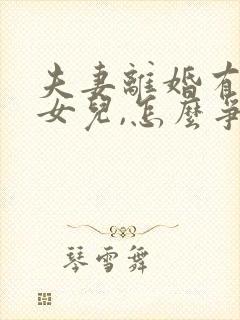 夫妻離婚有
女兒,怎麼爭
琴雪舞